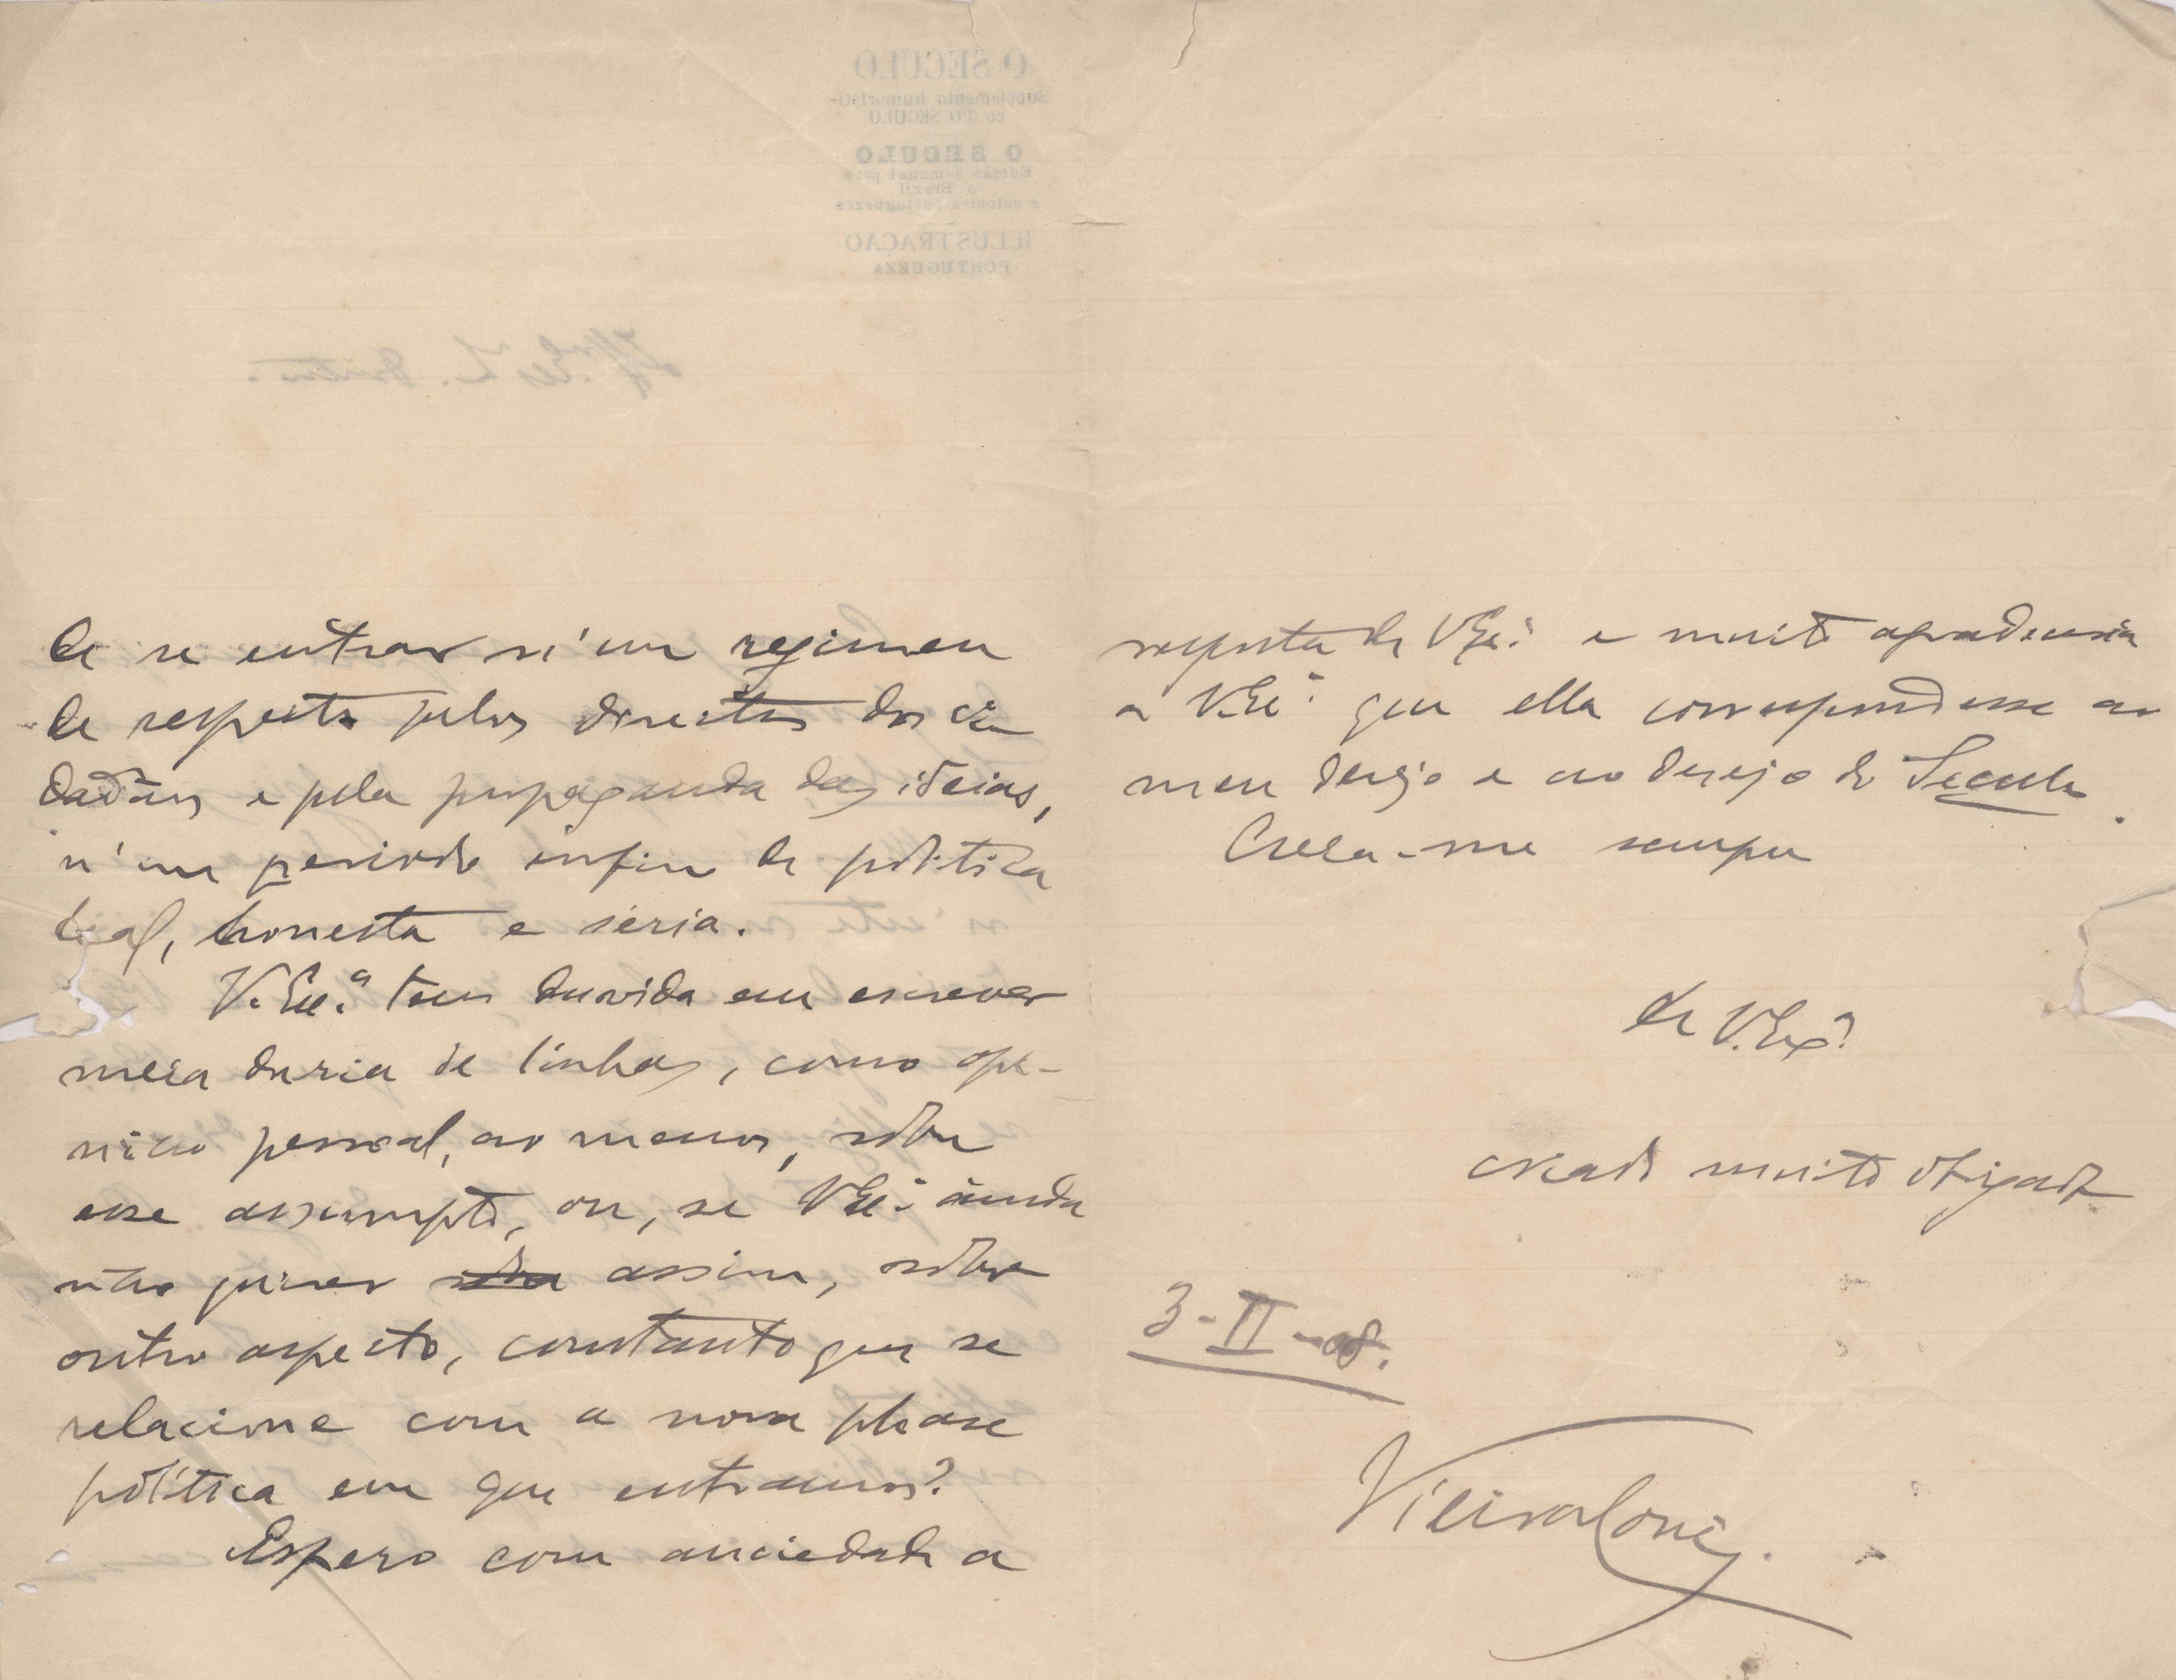 de se entrar n'um regimen
de respeito pelos direitos dos ci
dadãos e pela propaganda das ideias,
n'um periodo enfim de politica
leal, honesta e séria.
V. Ex.ª tem duvida em escrever
meia duzia de linhas, como opi-
nião pessoal, ao menos, sobre
esse assumpto, ou, se V. Ex.ª ainda
não quizer assim, sobre
outro aspecto, comtanto que se
relacione com a nova phase
politica em que entramos?
Espero com anciedade a
resposta de V. Ex.ª e muito agradeceria
a V. Ex.ª que ella correspondesse ao
meu desejo e ao desejo do Seculo.
Creia-me sempre
de V. Ex.ª
criado muito obrigado
3-II-08.
O SECULO
Supplemento humoristi-
co d'O SECULO
O SECULO
Edição semanal para
o Brazil
e colonias portuguezas
ILLUSTRAÇÃO
PORTUGUEZA